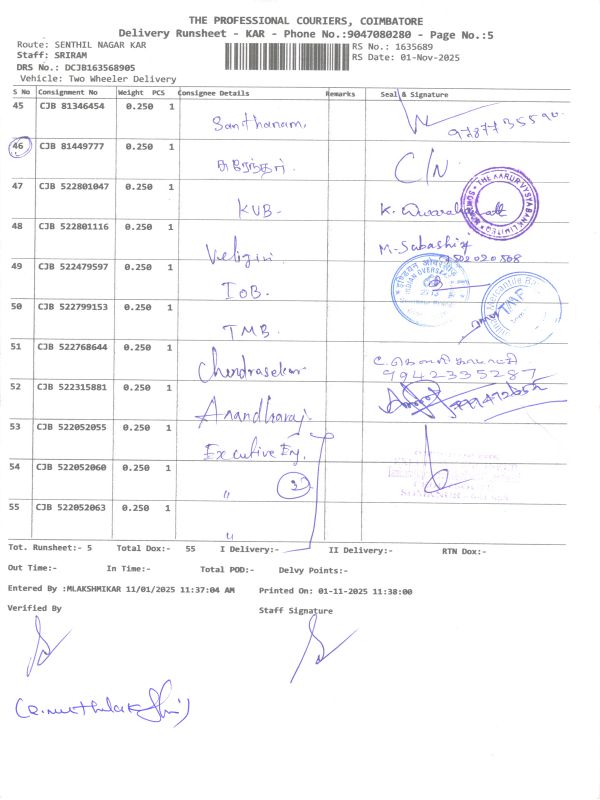 THE PROFESSIONAL COURIERS, COIMBATORE
Delivery Runsheet - KAR - Phone No.:9047080280 - Page No.:5
Route: SENTHIL NAGAR KAR
RS No.: 1635689
Staff: SRIRAM
RS Date: 01-Nov-2025
DRS No.: DCJB163568905
Vehicle: Two Wheeler Delivery
S No Consignment No Weight PCS Consignee Details Remarks Seal & Signature
45 CJB 81346454 0.250 1 Santhanam.
46 CJB 81449777 0.250 1 C/N
47 CJB 522801047 0.250 1 KVB-
48 CJB 522801116 0.250 1 Velgiri M-Sabashini
49 CJB 522479597 0.250 1 IOB-
50 CJB 522799153 0.250 1 TMB.
51 CJB 522768644 0.250 1 Chandrasekar
9942335287
52 CJB 522315881 0.250 1 Anandharaj.
53 CJB 522052055 0.250 1 Executive Eng.
54 CJB 522052060 0.250 1 "
3
55 CJB 522052063 0.250 1 "
Tot. Runsheet:- 5 Total Dox:- 55 I Delivery:- II Delivery:- RTN Dox:-
Out Time:- In Time:- Total POD:- Delvy Points:-
Entered By :MLAKSHMIKAR 11/01/2025 11:37:04 AM Printed On: 01-11-2025 11:38:00
Verified By Staff Signature